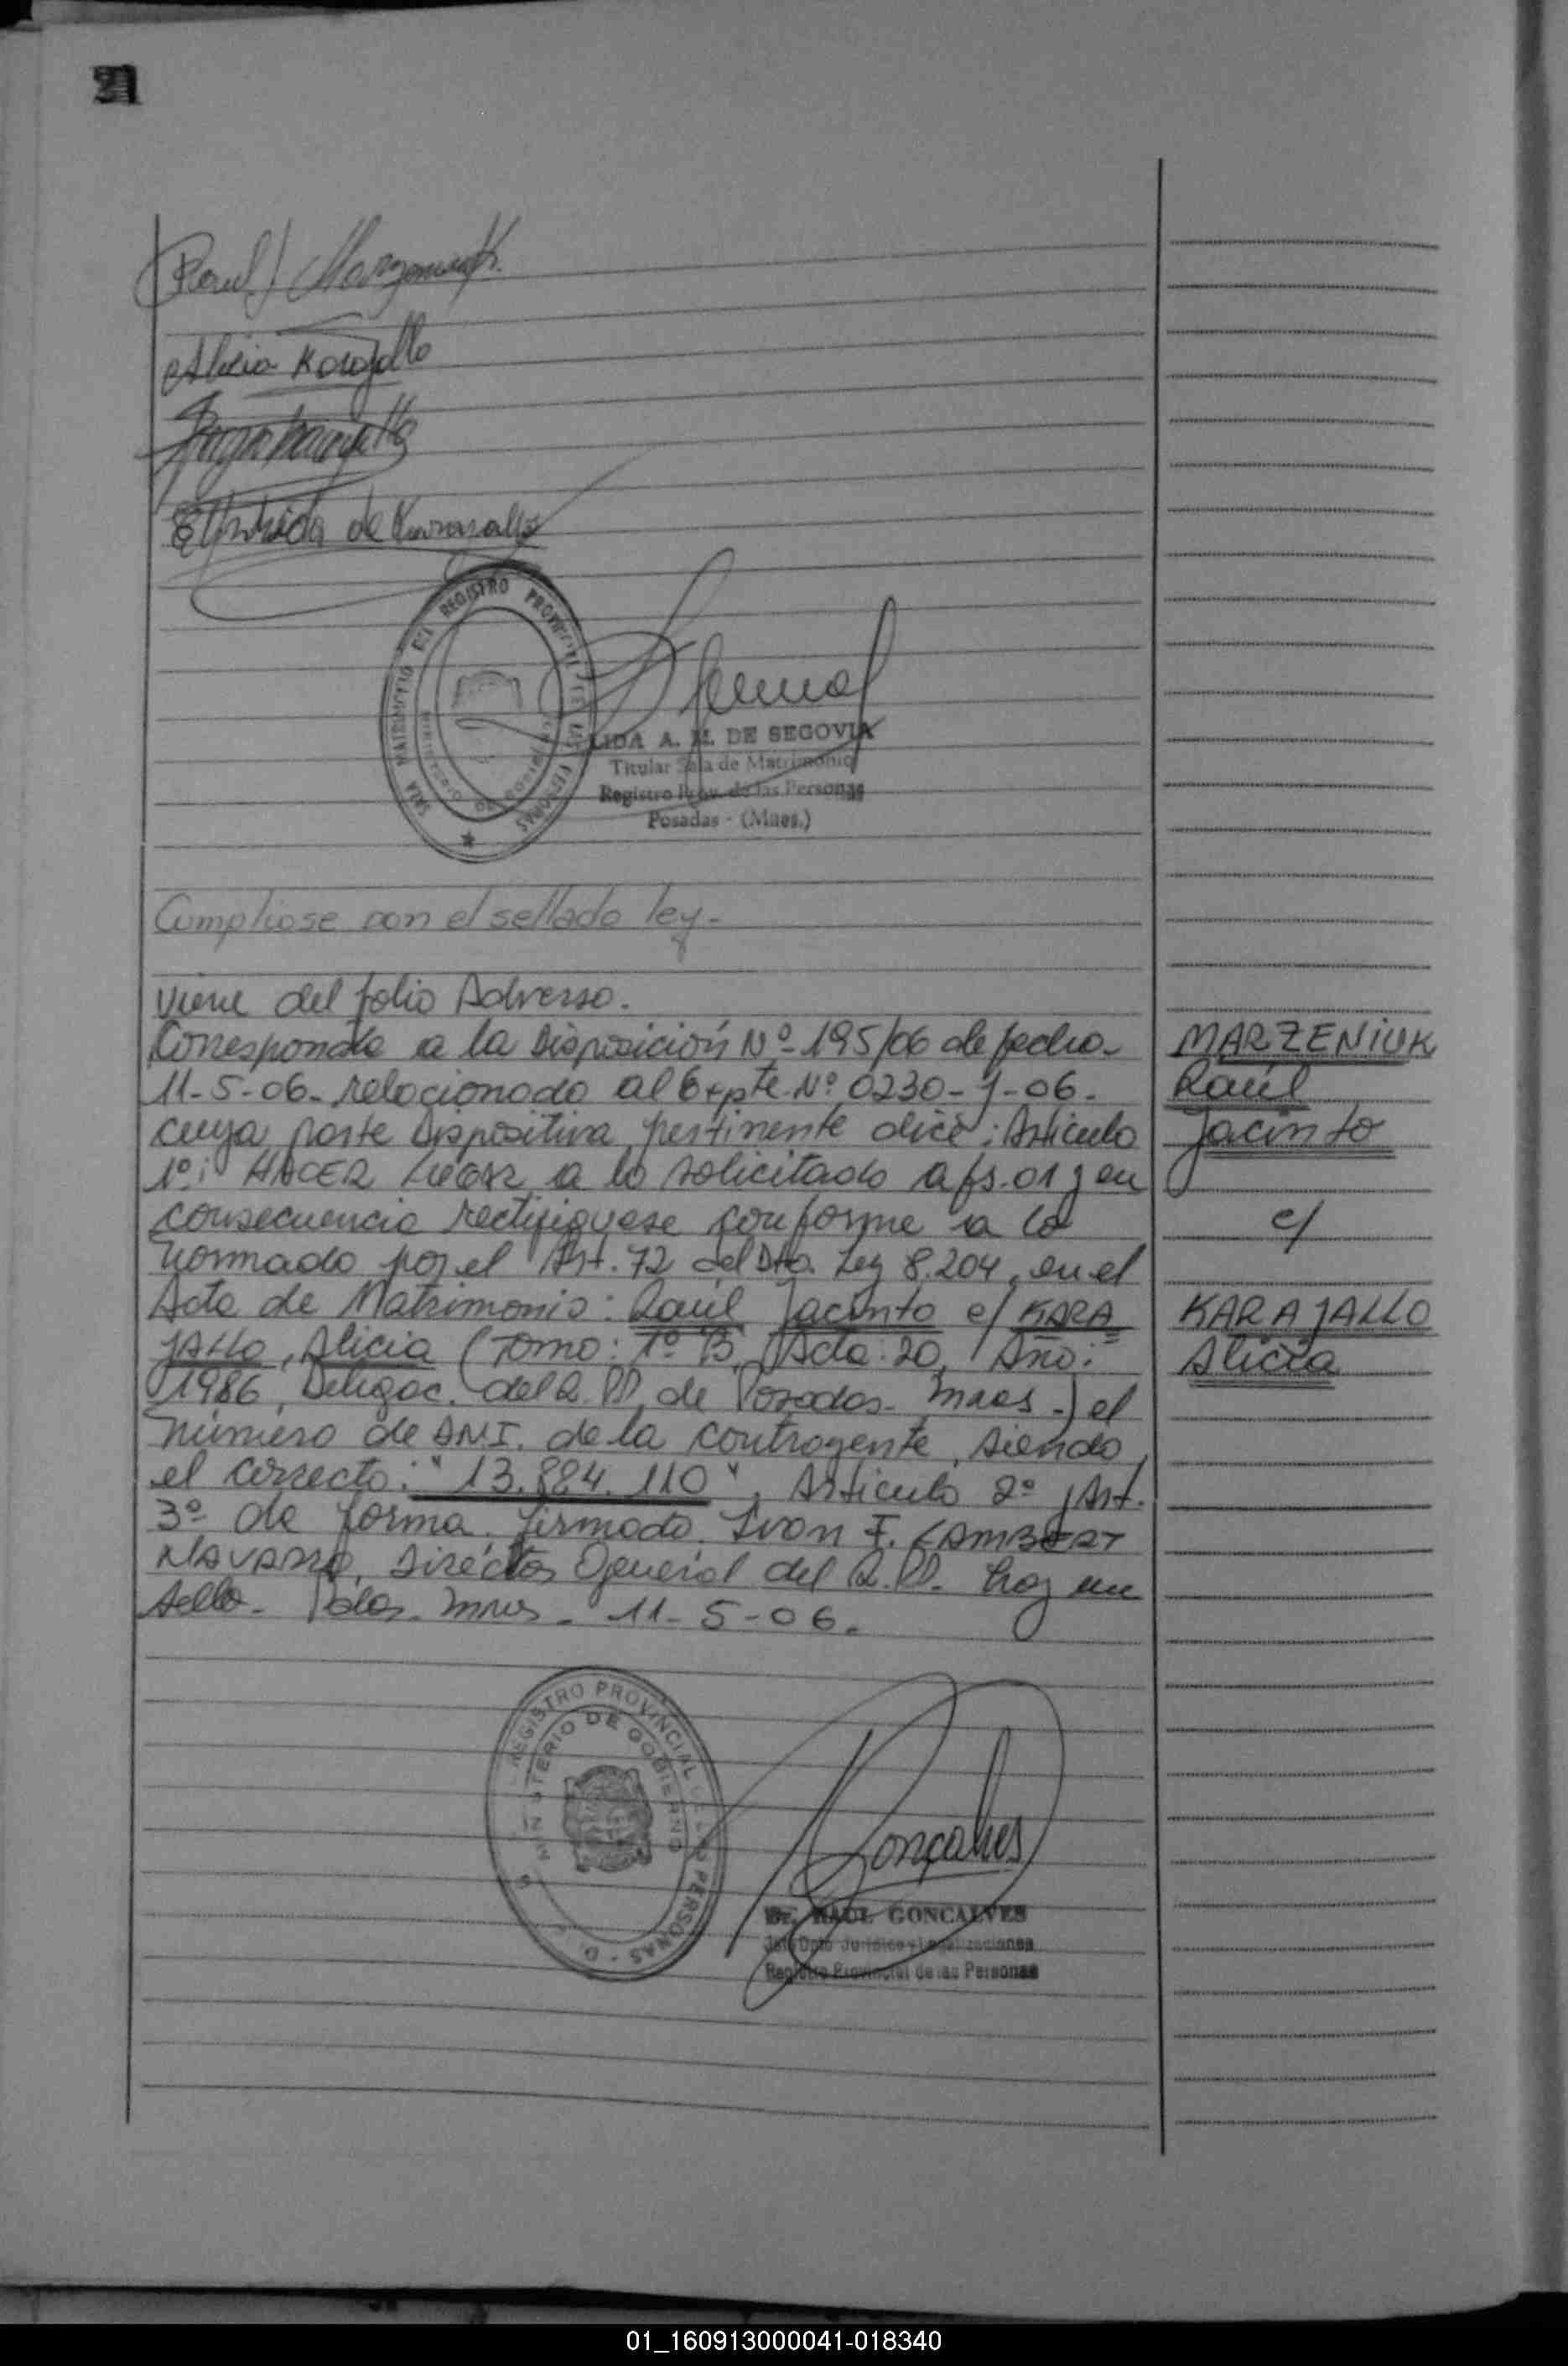 21
Raul J Marzeniuk
Alicia Karajallo
de Karajallo
SALA MATRIMONIO DEL REGISTRO PROVINCIAL DE LAS PERSONAS
LIDA A. M. DE SEGOVIA
Titular Sala de Matrimonio
Registro Prov. de las Personas
Posadas - (Mnes.)
Cumpliose con el sellado ley-
Viene del folio Adverso.
Corresponde a la Disposición Nº-195/06 de fecha-
11-5-06- relacionado al Expte. Nº 0230- -06-
cuya parte Dispositiva pertinente dice: Artículo
1º: HACER Lugar a lo solicitado a fs. 01 y en
consecuencia rectifiquese conforme a lo
normado por el Art. 72 del Dto. Ley 8.204, en el
Acta de Matrimonio: Raúl Jacinto c/ KARA
JALLO, Alicia (Tomo: 1º B, Acta: 20, Año:
1986, Delegac. del R.PP. de Posadas- Mnes-) el
número de DNI. de la contrayente, siendo
el correcto: "13.884.110", Artículo 2º y Art.
3º de forma. firmado. Ivon F. LAMBERT
NAVARRO, Director General del R.PP. hay un
sello- Pdas. Mnes- 11-5-06.
MARZENIUK
Raúl
Jacinto
c/
KARAJALLO
Alicia
REGISTRO PROVINCIAL DE LAS PERSONAS
MINISTERIO DE GOBIERNO
Gonçalves
Dr. RAUL GONCALVES
Jefe Dpto Jurídico y Legalizaciones
Registro Provincial de las Personas
01_160913000041-018340